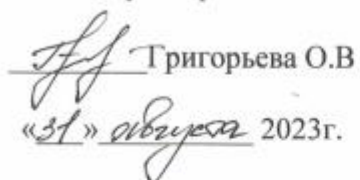 Григорьева О.В
«31» августа 2023г.